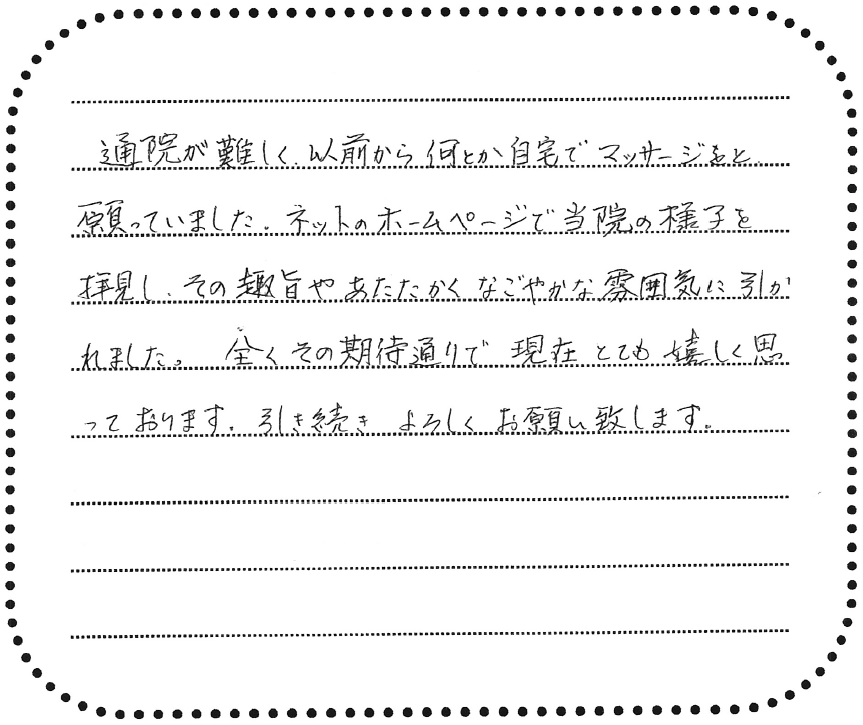 通院が難しく、以前から何とか自宅でマッサージをと、
願っていました。ネットのホームページで当院の様子を
拝見し、その趣旨やあたたかくなごやかな雰囲気に引か
れました。 全くその期待通りで 現在 とても 嬉しく思
って おります。引き続き よろしく お願い致します。